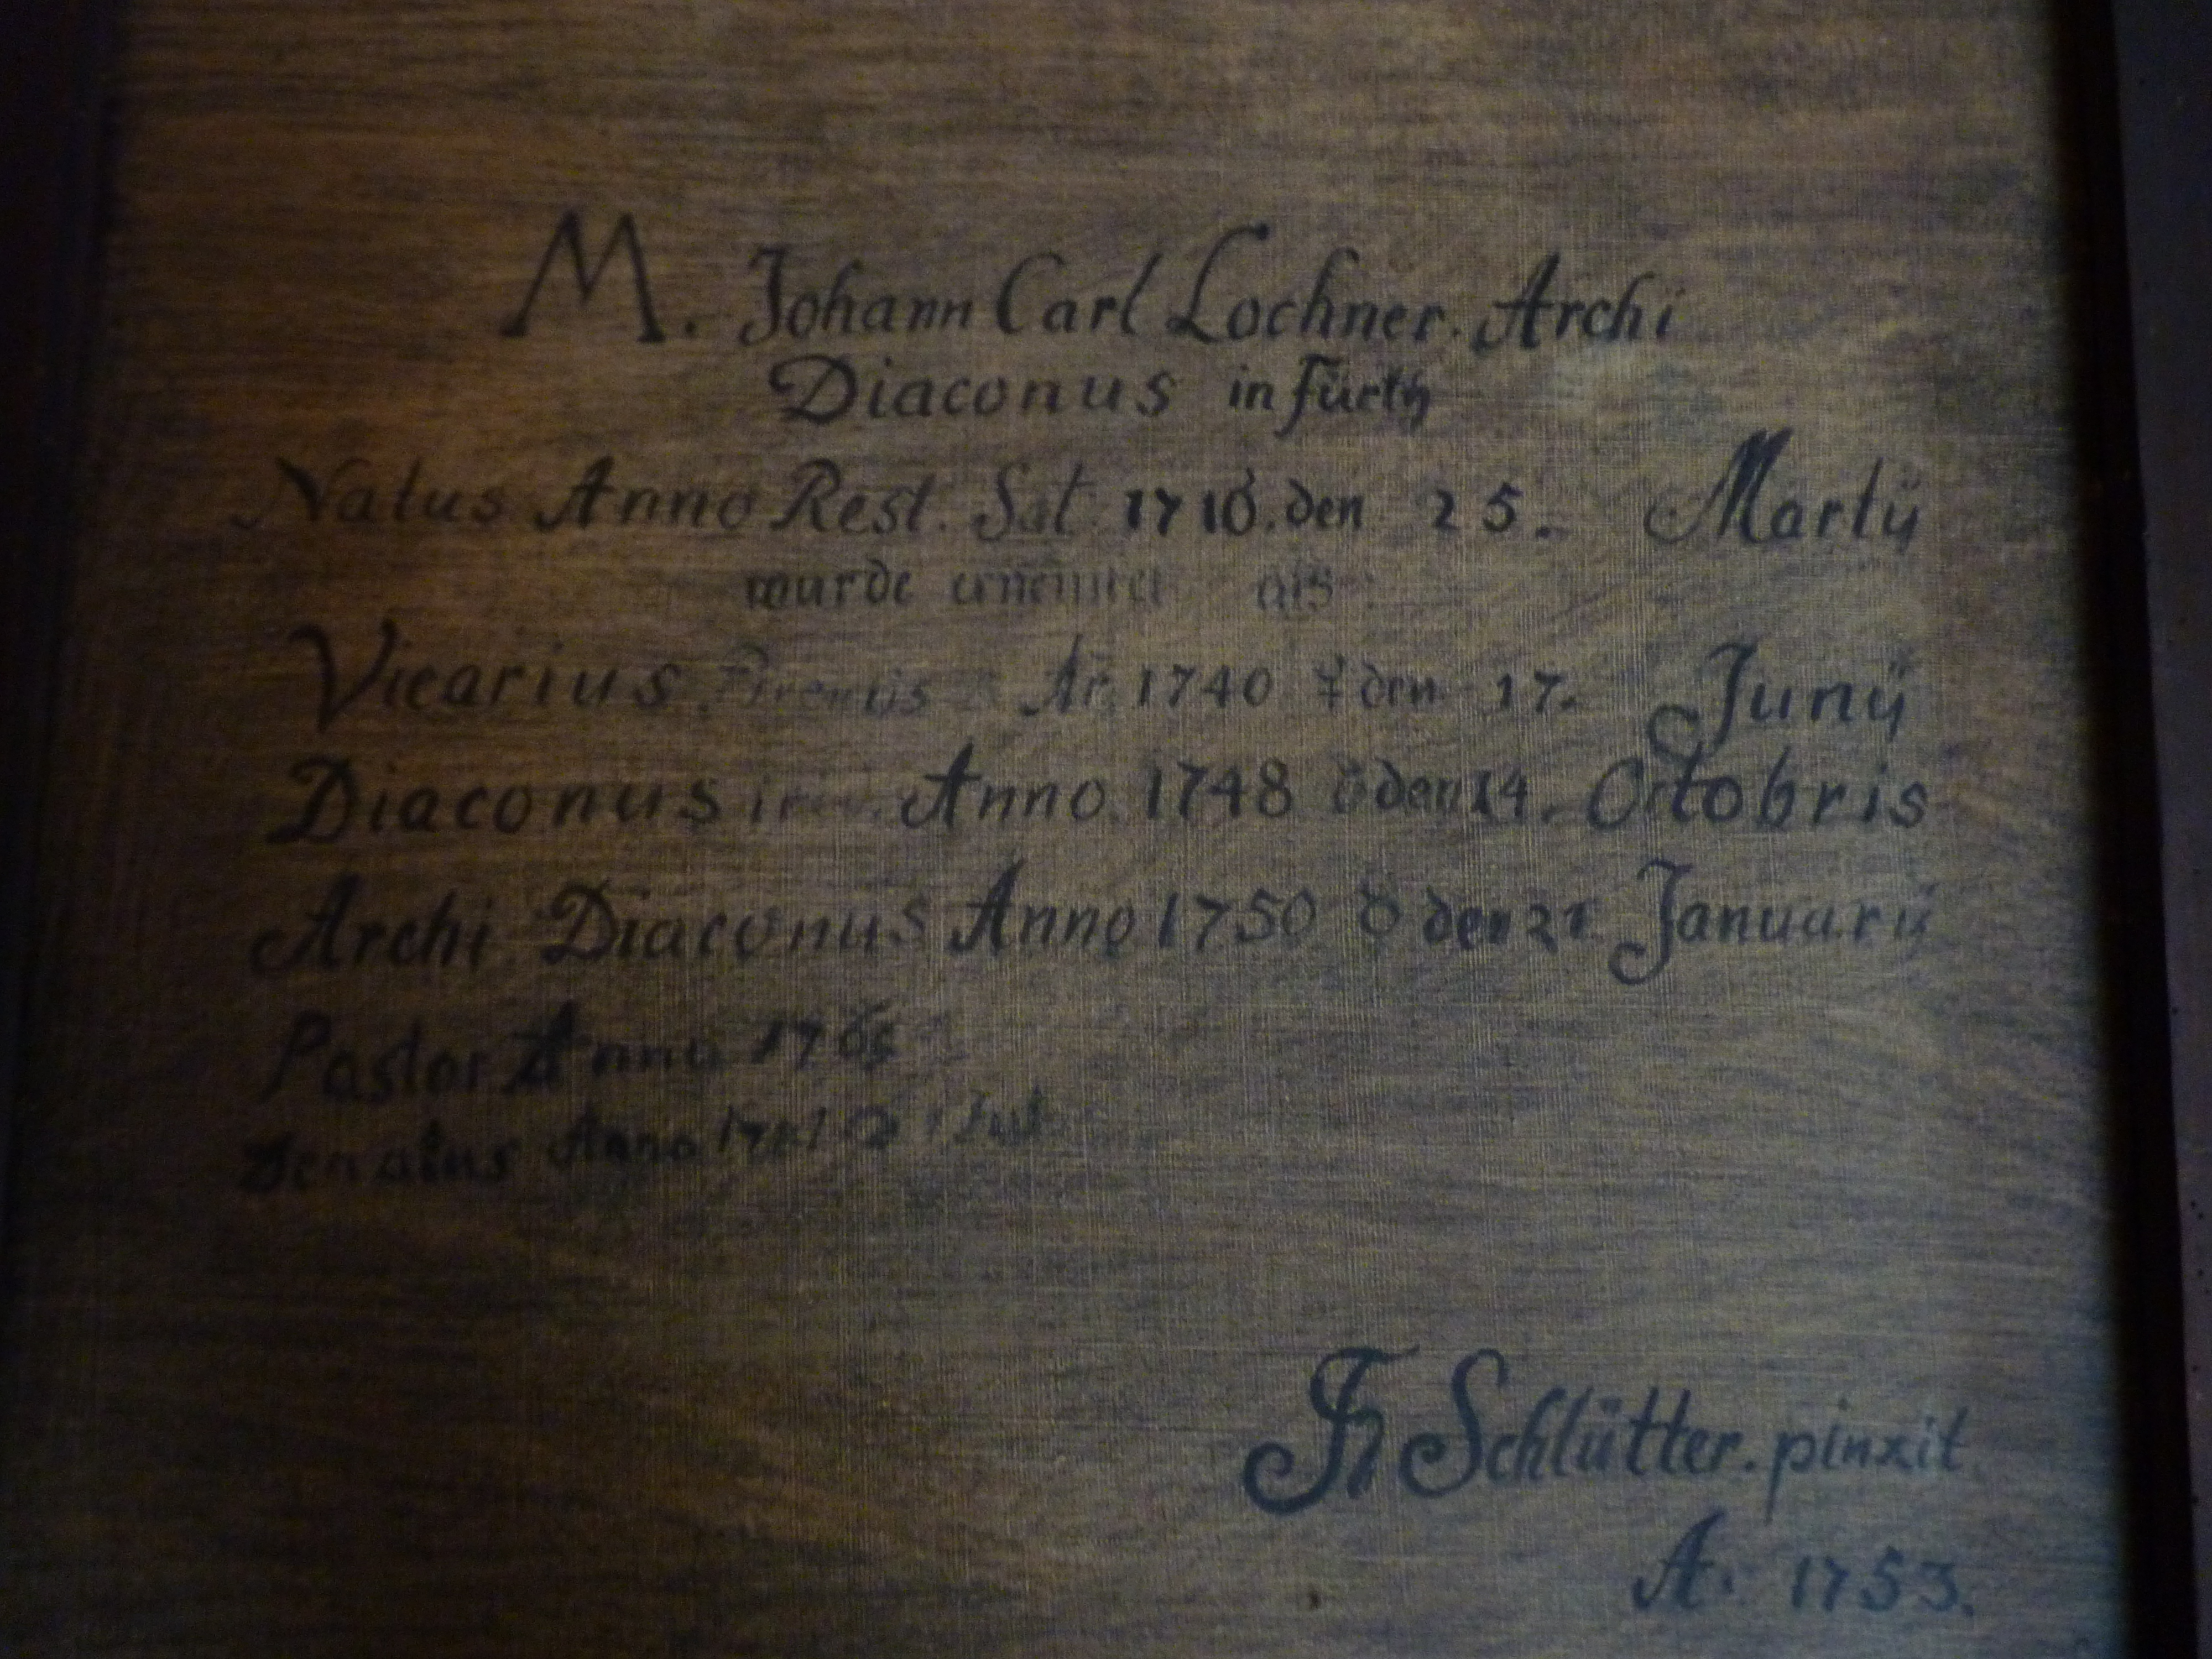 M. Johann Carl Lochner. Archi
Diaconus in Fürth
Natus Anno Rest. Sal. 1710. den 25. Martÿ
wurde als
Vicarius 1740 ☿ den 17. Junÿ
Diaconus Anno. 1748 den 14. Octobris
Archi Diaconus Anno 1750 den 21 Januarÿ
Pastor Anno
Denatus Anno
Schlütter. pinxit
A. 1753.